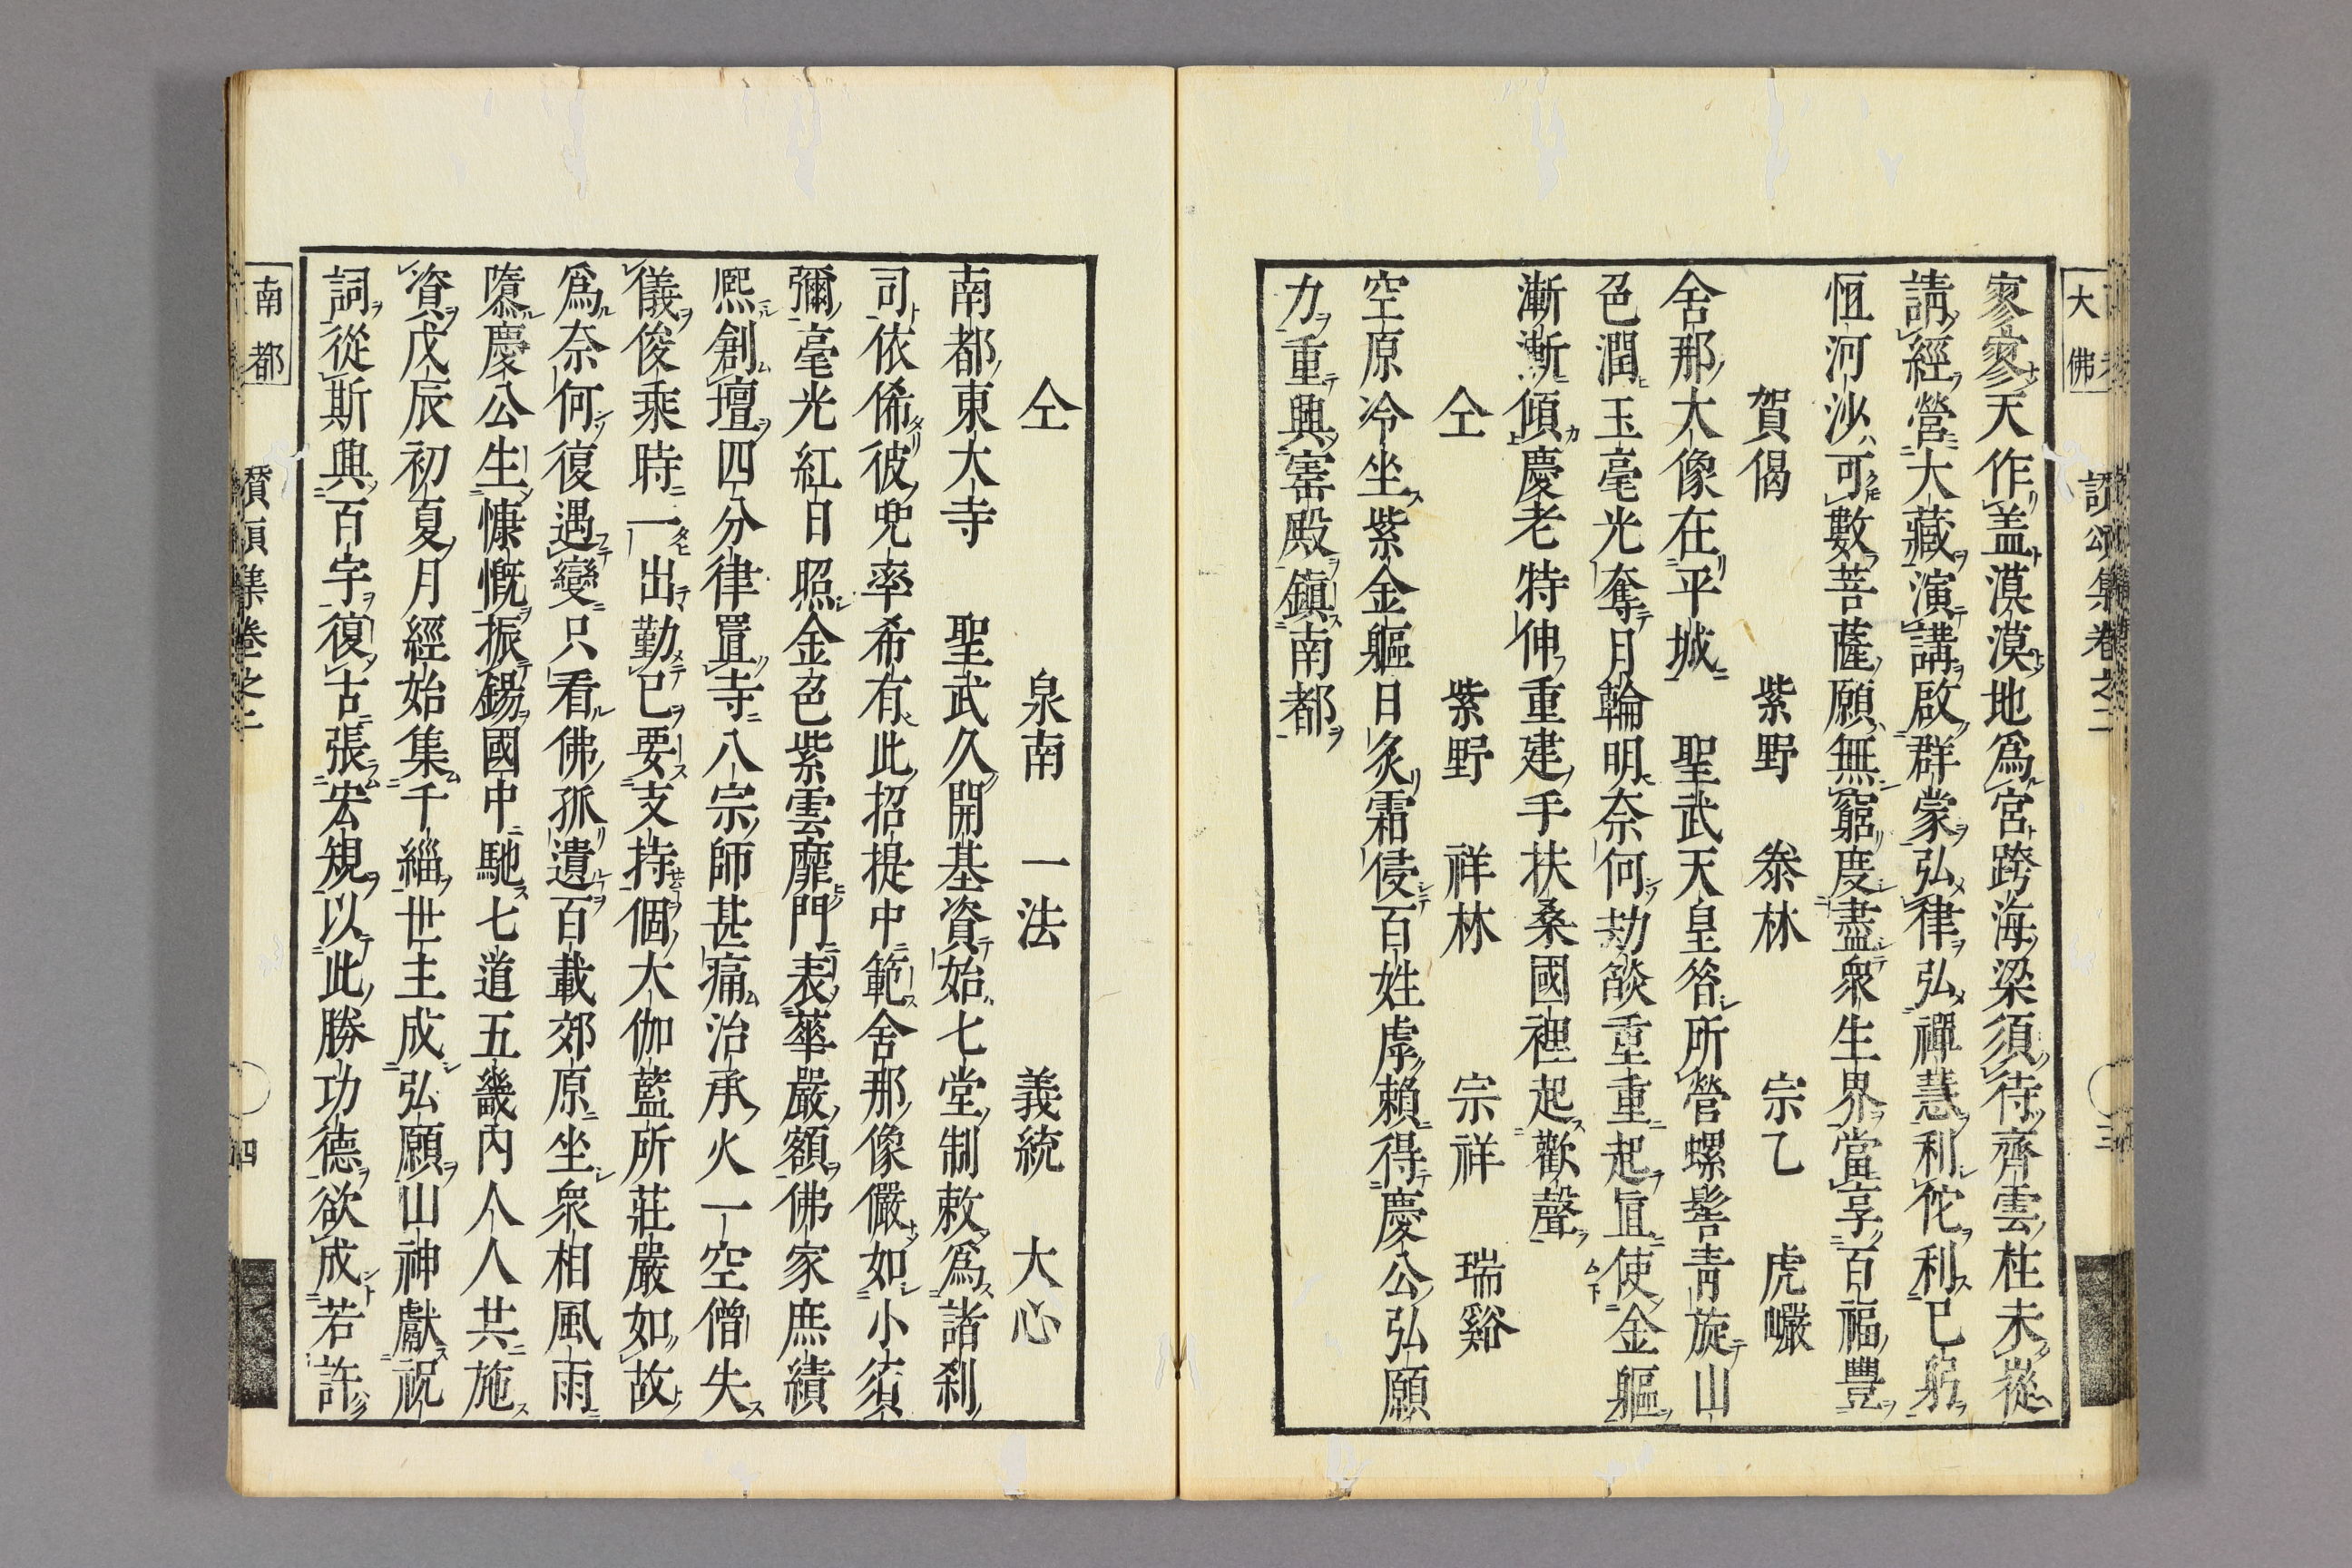 寥寥天作盖漠漠地爲宮跨海梁須待齊雲柱未從
請經營大藏演講啟群蒙弘律弘禪慧利佗利已躬
恒河沙可數菩薩願無窮度盡衆生界當享百福豐
賀偈 紫野 泰林 宗乙 虎巖
舍那大像在平城 聖武天皇答所營螺髻靑旋山
色潤玉毫光奪月輪明奈何劫燄重重起直使金軀
漸漸傾慶老特伸重建手扶桑國裡起歡聲
仝 紫野 祥林 宗祥 瑞谿
空原冷坐紫金軀日炙霜侵百姓虖賴得慶公弘願
力重興寶殿鎭南都
大佛 讃頌集卷之二 三
仝 泉南 一法 義統 大心
南都東大寺 聖武久開基資始七堂制敕爲諸刹
司依俙彼兜率希有此招提中範舍那像儼如小須
彌毫光紅日照金色紫雲靡門表華嚴額佛家庶績
熈創壇四分律置寺八宗師甚痛治承火一空僧失
儀俊乘時一出勤已要支持個大伽藍所莊嚴如故
爲奈何復遇變只看佛孤遺百載郊原坐衆相風雨
隳慶公生慷慨振錫國中馳七道五畿內人人共施
資戊辰初夏月經始集千緇世主成弘願山神獻祝
詞從斯興百宇復古張宏規以此勝功德欲成若許
南都 讃頌集卷之二 四